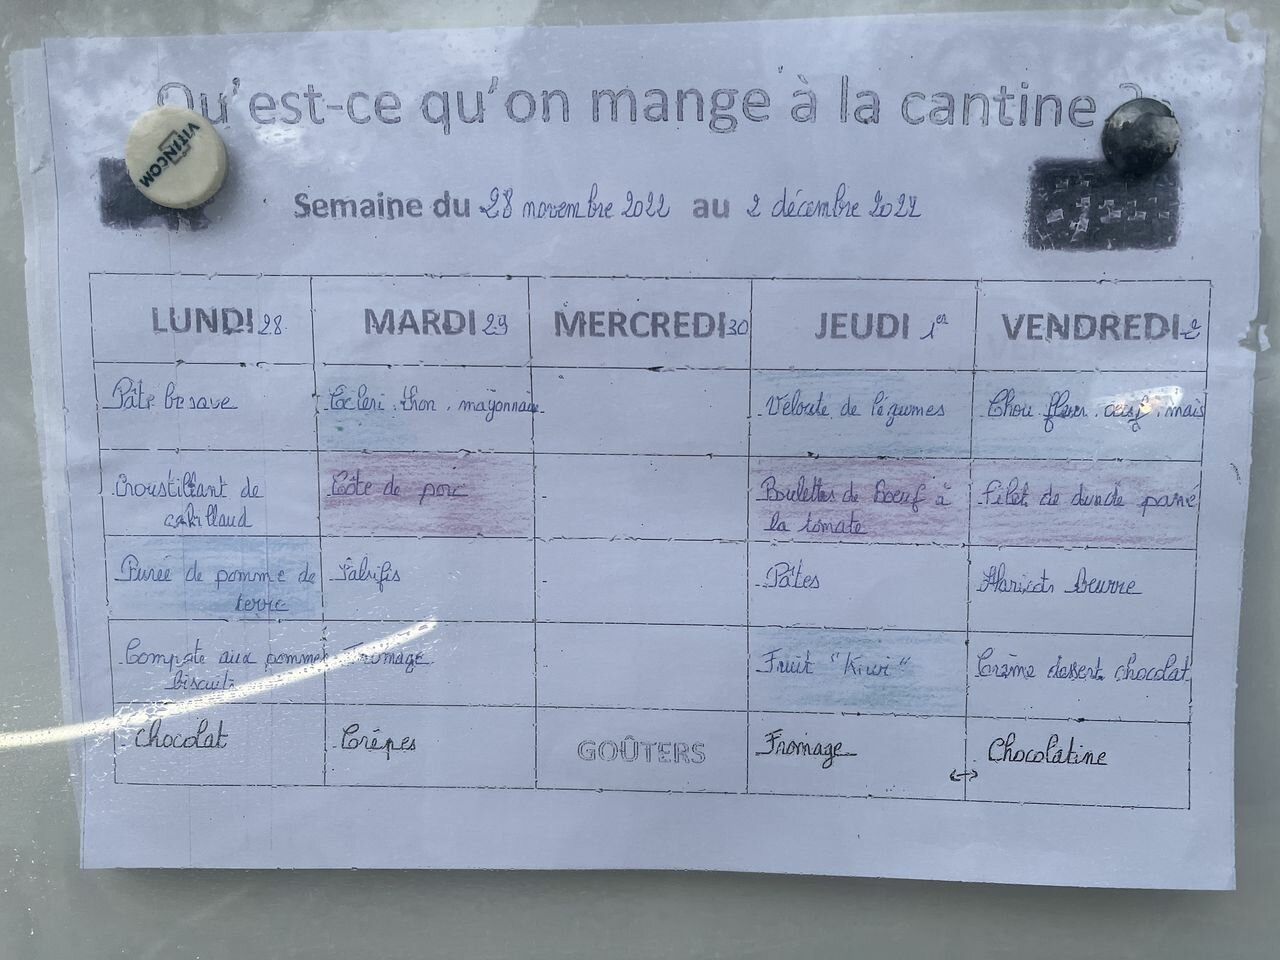 Qu'est-ce qu'on mange à la cantine ?
VITINCOM
Semaine du 28 novembre 2022 au 2 décembre 2022
LUNDI 28 MARDI 29 MERCREDI 30 JEUDI 1er VENDREDI 2
Pâté Céleri, thon, mayonnaise Velouté de légumes Chou fleur, oeuf, maïs
Croustillant de Côte de porc Boulettes de boeuf à Filet de dinde pané
cabillaud la tomate
Purée de pomme de Salsifis Pâtes Haricots beurre
terre
Compote aux pommes Fromage Fruit "Kiwi" Crème dessert chocolat
biscuit
Chocolat Crêpes GOÛTERS Fromage Chocolatine